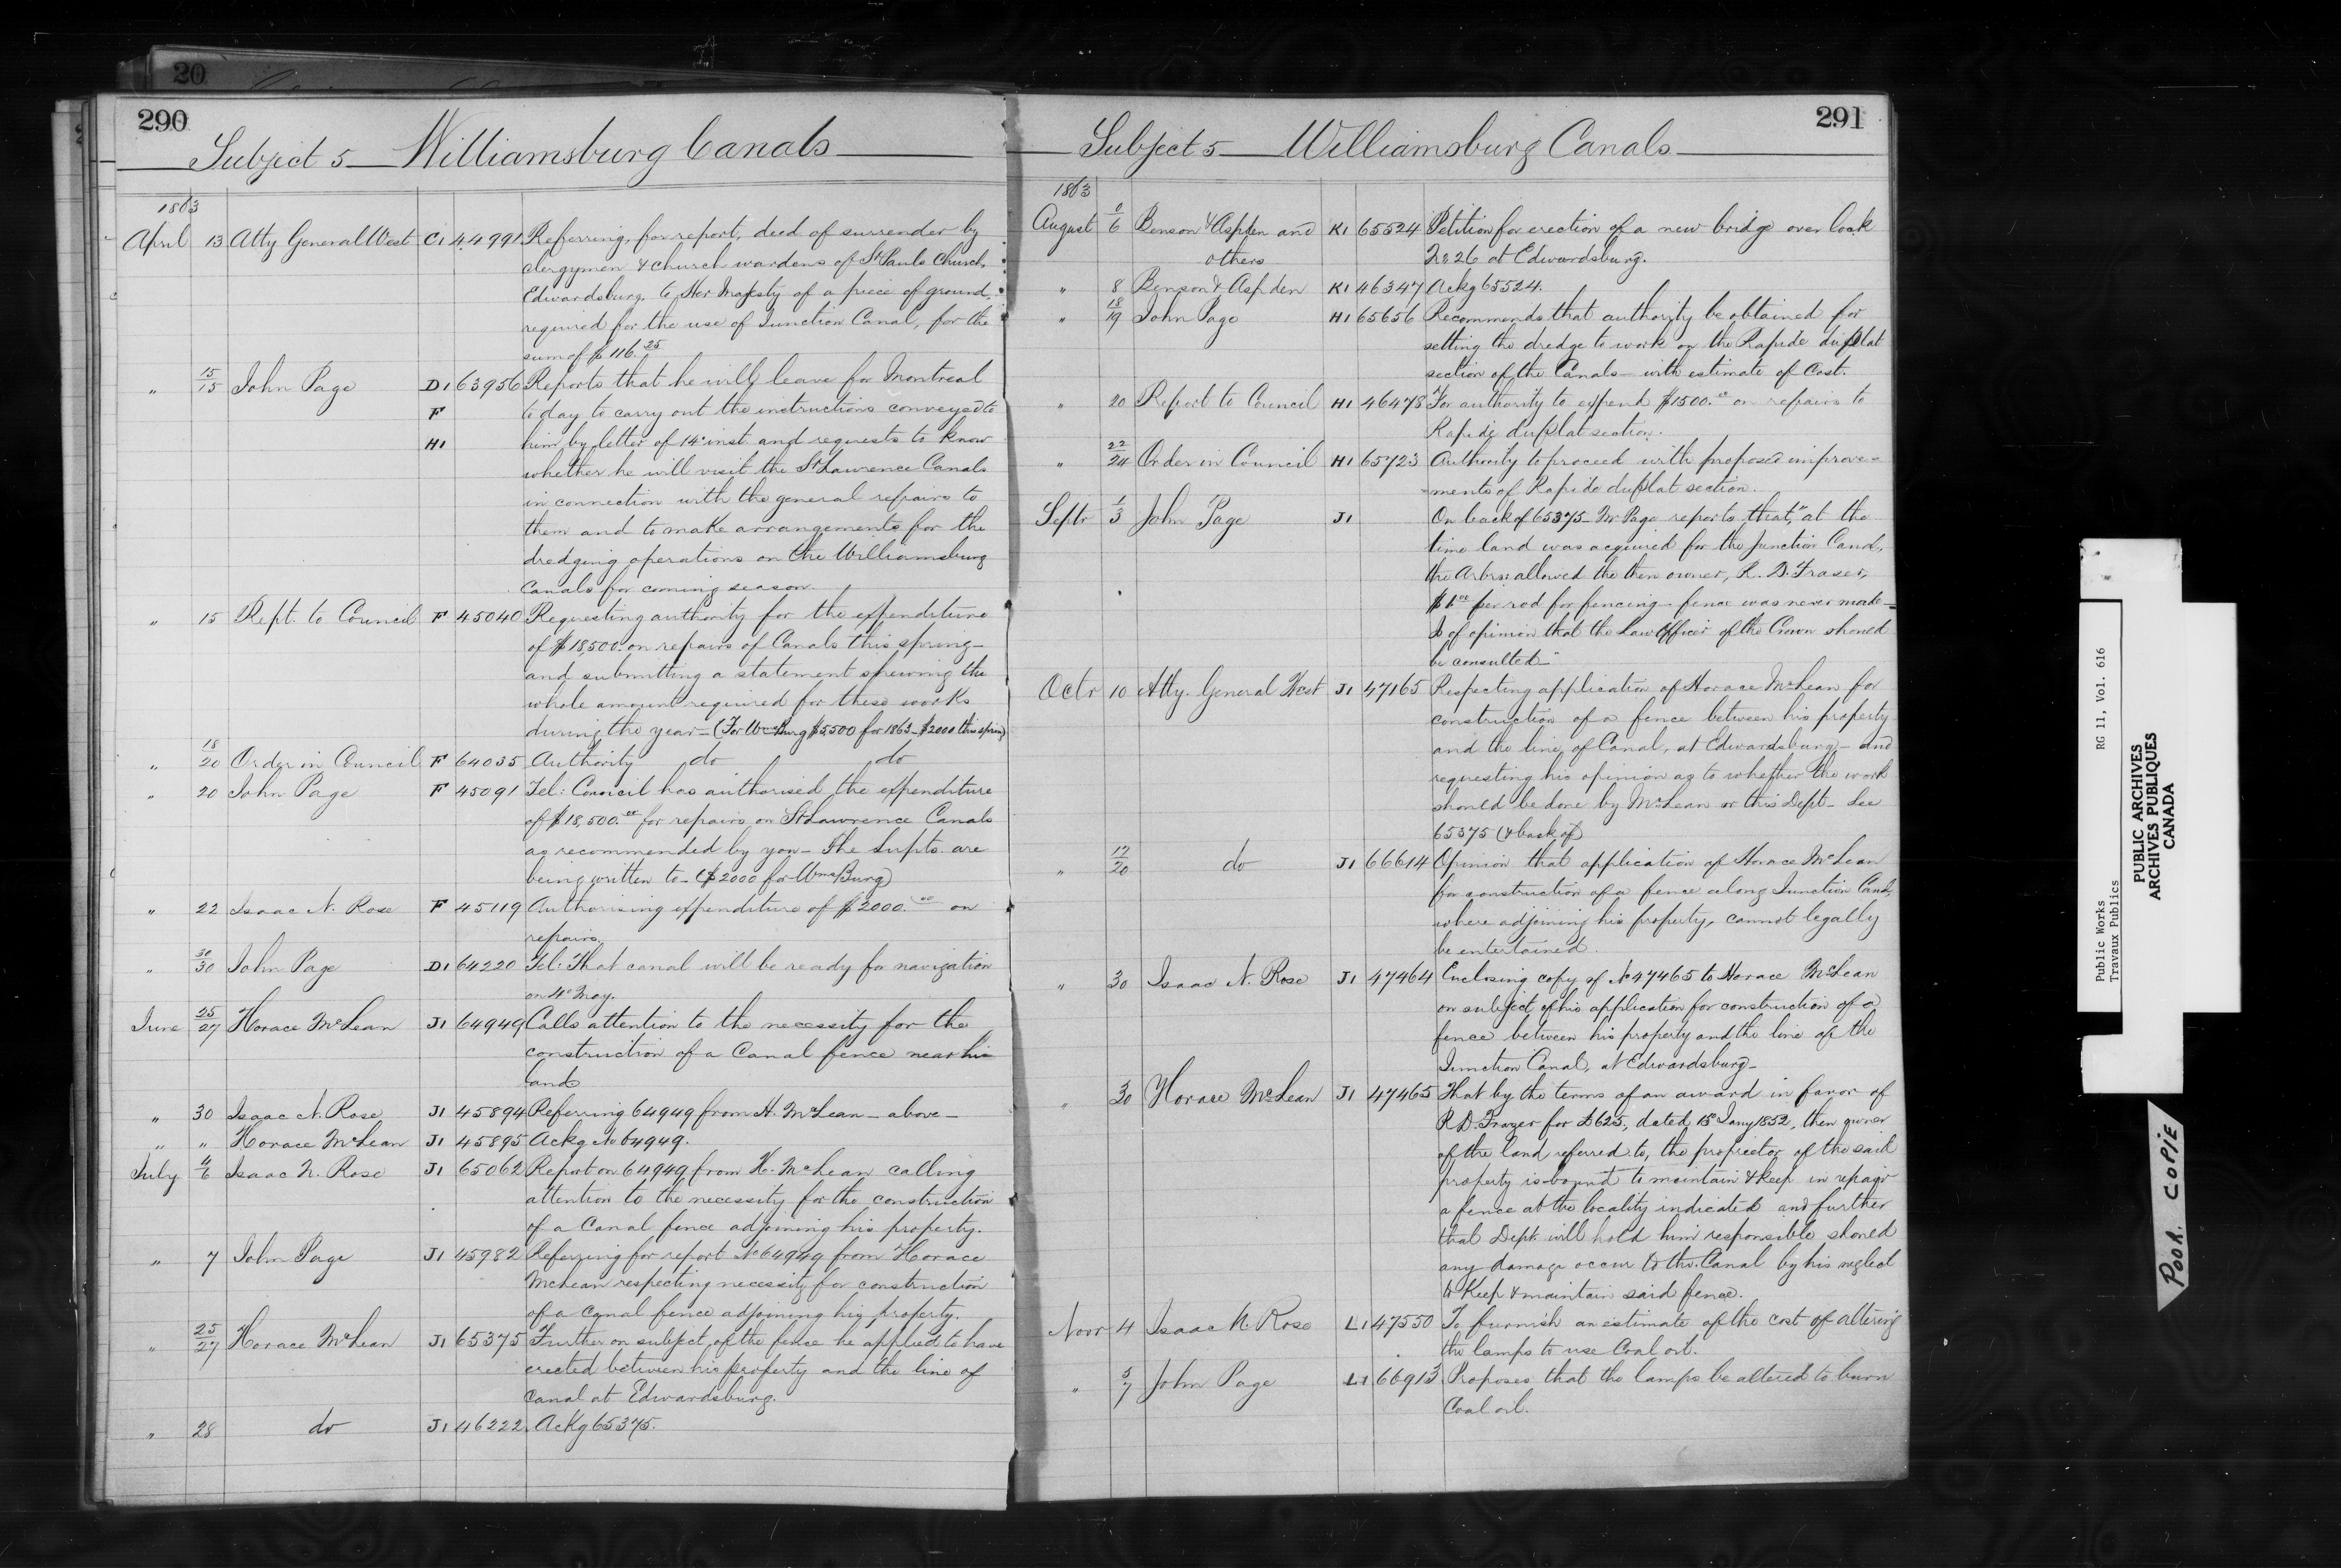 20
290
Subject 5 Williamsburg Canals
1863
April 13 Atty General West C1 44991 Referring, for report, deed of surrender by
clergymen & church wardens of St Pauls Church,
Edwardsburg, to Her Majesty of a piece of ground
required for the use of Junction Canal, for the
sum of $116.25
" 15/15 John Page D1 63956 Reports that he will leave for Montreal
F to day to carry out the instructions conveyed to
H1 him by letter of 14th inst. and requests to know
whether he will visit the St Lawrence Canals
in connection with the general repairs to
them and to make arrangements for the
dredging operations on the Williamsburg
Canals for coming season.
" 15 Rept. to Council F 45040 Requesting authority for the expenditure
of $18,500. on repairs of Canals this spring—
and submitting a statement shewing the
whole amount required for these works
during the year—(For WmsBurg $5,500 for 1863—$2000 this spring)
" 18/20 Order in Council F 64035 Authority do do
" 20 John Page F 45091 Tel: Council has authorised the expenditure
of $18,500.00 for repairs on St Lawrence Canals
as recommended by you— The Supts. are
being written to—($2000 for WmsBurg)
" 22 Isaac N. Rose F 45119 Authorising expenditure of $2000.00 on
repairs.
" 30/30 John Page D1 64220 Tel: That canal will be ready for navigation
on 4th May.
June 25/27 Horace McLean J1 64949 Calls attention to the necessity for the
construction of a Canal fence near his
land
" 30 Isaac N. Rose J1 45894 Referring 64949 from H. McLean—above—
" " Horace McLean J1 45895 Ackg No 64949.
July 4/6 Isaac N. Rose J1 65062 Report on 64949 from H. McLean calling
attention to the necessity for the construction
of a Canal fence adjoining his property.
" 7 John Page J1 45982 Referring for report No 64949 from Horace
McLean respecting necessity for construction
of a canal fence adjoining his property.
" 25/27 Horace McLean J1 65375 Further on subject of the fence he applied to have
erected between his property and the line of
Canal at Edwardsburg.
" 28 do J1 46222 Ackg 65375.
291
Subject 5 Williamsburg Canals
1863
August 6 Benson & Aspden and K1 65524 Petition for erection of a new bridge over lock
others No 26 at Edwardsburg.
" 8 Benson & Aspden K1 46347 Ackg 65524.
" 18/19 John Page H1 65656 Recommends that authority be obtained for
setting the dredge to work on the Rapide du plat
section of the Canals—with estimate of Cost.
" 20 Report to Council H1 46478 For authority to expend $1500.00 on repairs to
Rapide du plat section.
" 22/24 Order in Council H1 65723 Authority to proceed with proposed improve=
=ments of Rapide du plat section.
Septr 1/3 John Page J1 On back of 65375—Mr Page reports that, "at the
time land was acquired for the Junction Canal,
the Arbrs: allowed the then owner, R. D. Fraser,
$1.00 per rod for fencing—fence was never made—
Is of opinion that the Law Officer of the Crown should
be consulted—"
Octr 10 Atty. General West J1 47165 Respecting application of Horace McLean for
construction of a fence between his property
and the line of Canal, at Edwardsburg—and
requesting his opinion as to whether the work
should be done by McLean or this Dept—See
65375 (& back of)
" 17/20 do J1 66614 Opinion that application of Horace McLean
for construction of a fence along Junction Canal,
where adjoining his property, cannot legally
be entertained.
" 30 Isaac N. Rose J1 47464 Enclosing copy of No 47465 to Horace McLean
on subject of his application for construction of a
fence between his property and the line of the
Junction Canal, at Edwardsburg—
" 30 Horace McLean J1 47465 That by the terms of an award in favor of
R. D. Frazer for £625, dated, Jany 1852, then owner
of the land referred to, the proprietor of the said
property is bound to maintain & keep in repair
a fence at the locality indicated and further
that Dept. will hold him responsible should
any damage occur to the Canal by his neglect
to Keep & maintain said fence.
Novr 4 Isaac N. Rose L1 47550 To furnish an estimate of the cost of altering
the lamps to use Coal oil.
" 5/7 John Page L1 66913 Proposes that the lamps be altered to burn
Coal oil.
Public Works RG 11, Vol. 616
Travaux Publics
PUBLIC ARCHIVES
ARCHIVES PUBLIQUES
CANADA
POOR COPIE